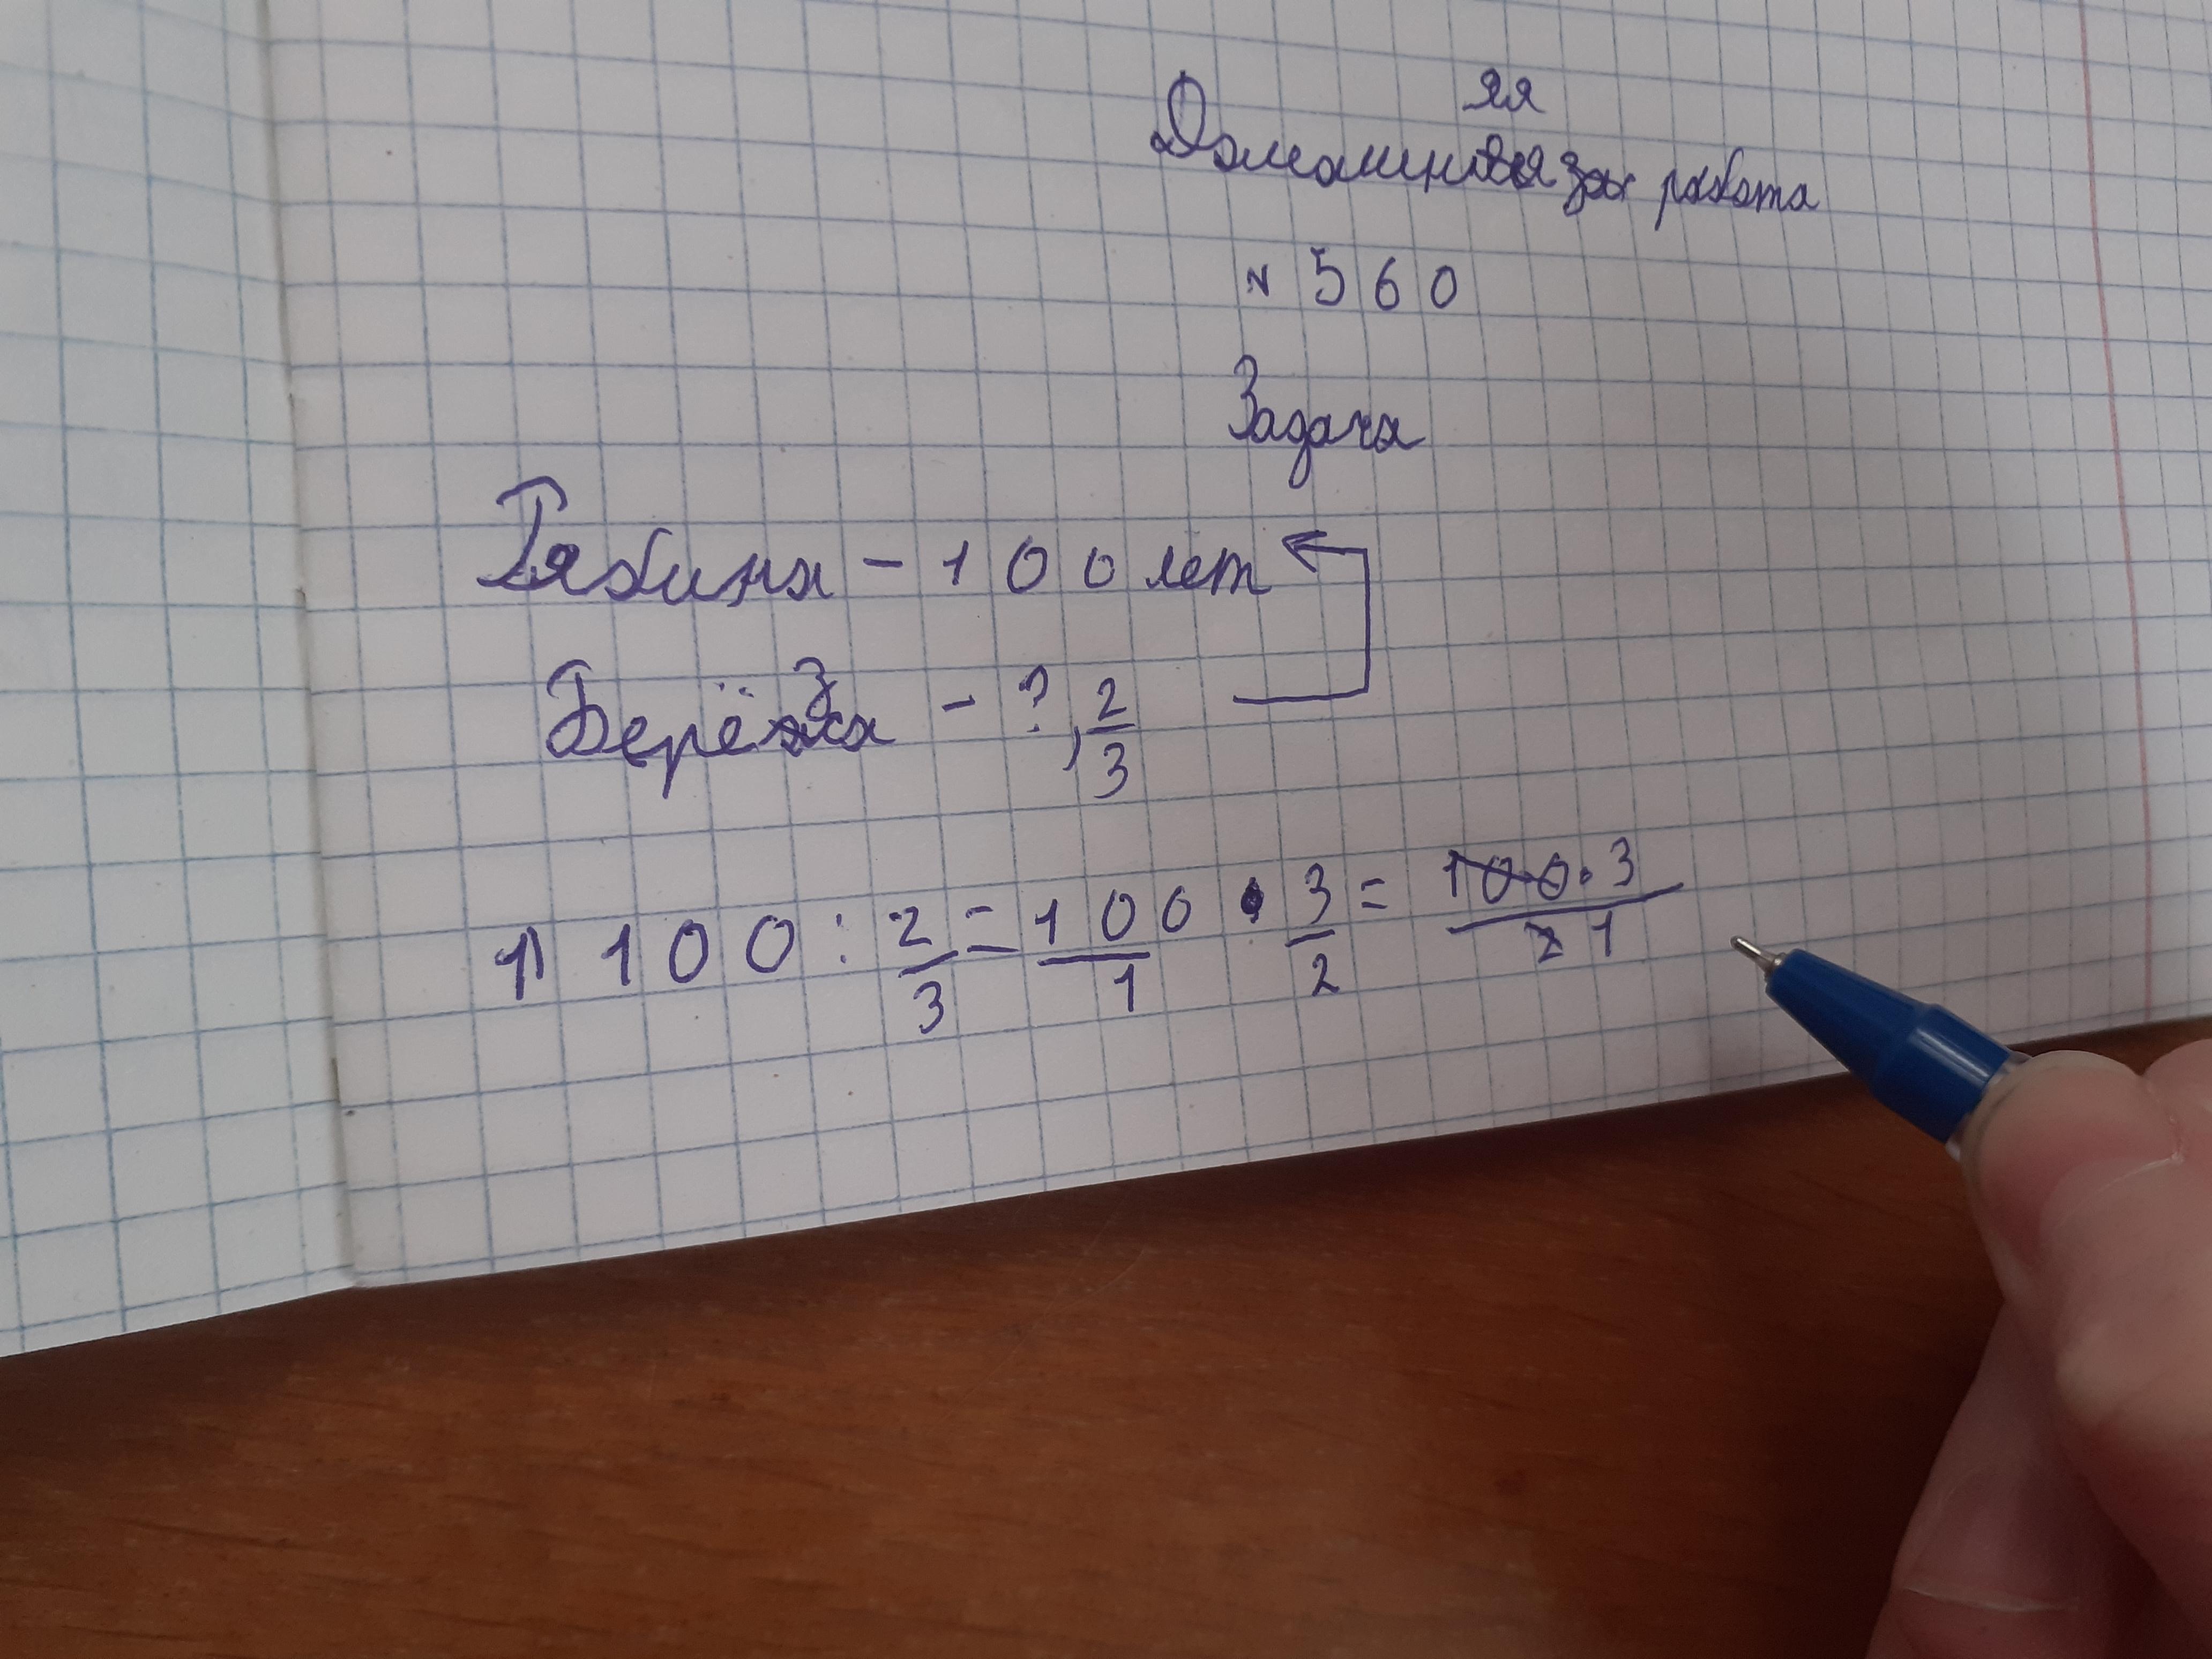 яя
Домашн работа
№ 560
Задача
Рябина - 100 лет
Берёза - ?, 2/3
1) 100 : 2/3 = 100/1 · 3/2 = 100·3/2 1